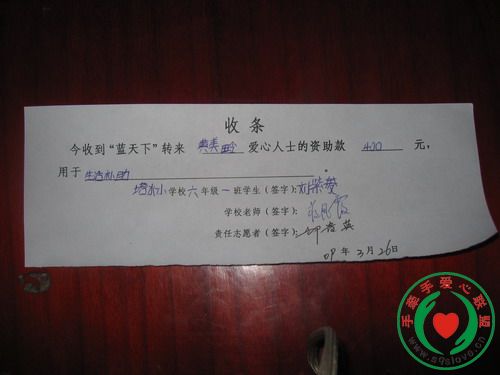 收 条
今收到“蓝天下”转来 爱心人士的资助款 400 元，
用于 生活补助 。
塔水小学校六年级一班学生（签字）：刘
学校老师（签字）：
责任志愿者（签字）：英
09 年 3 月 26日
手牵手爱心联盟
www.sqslove.cn